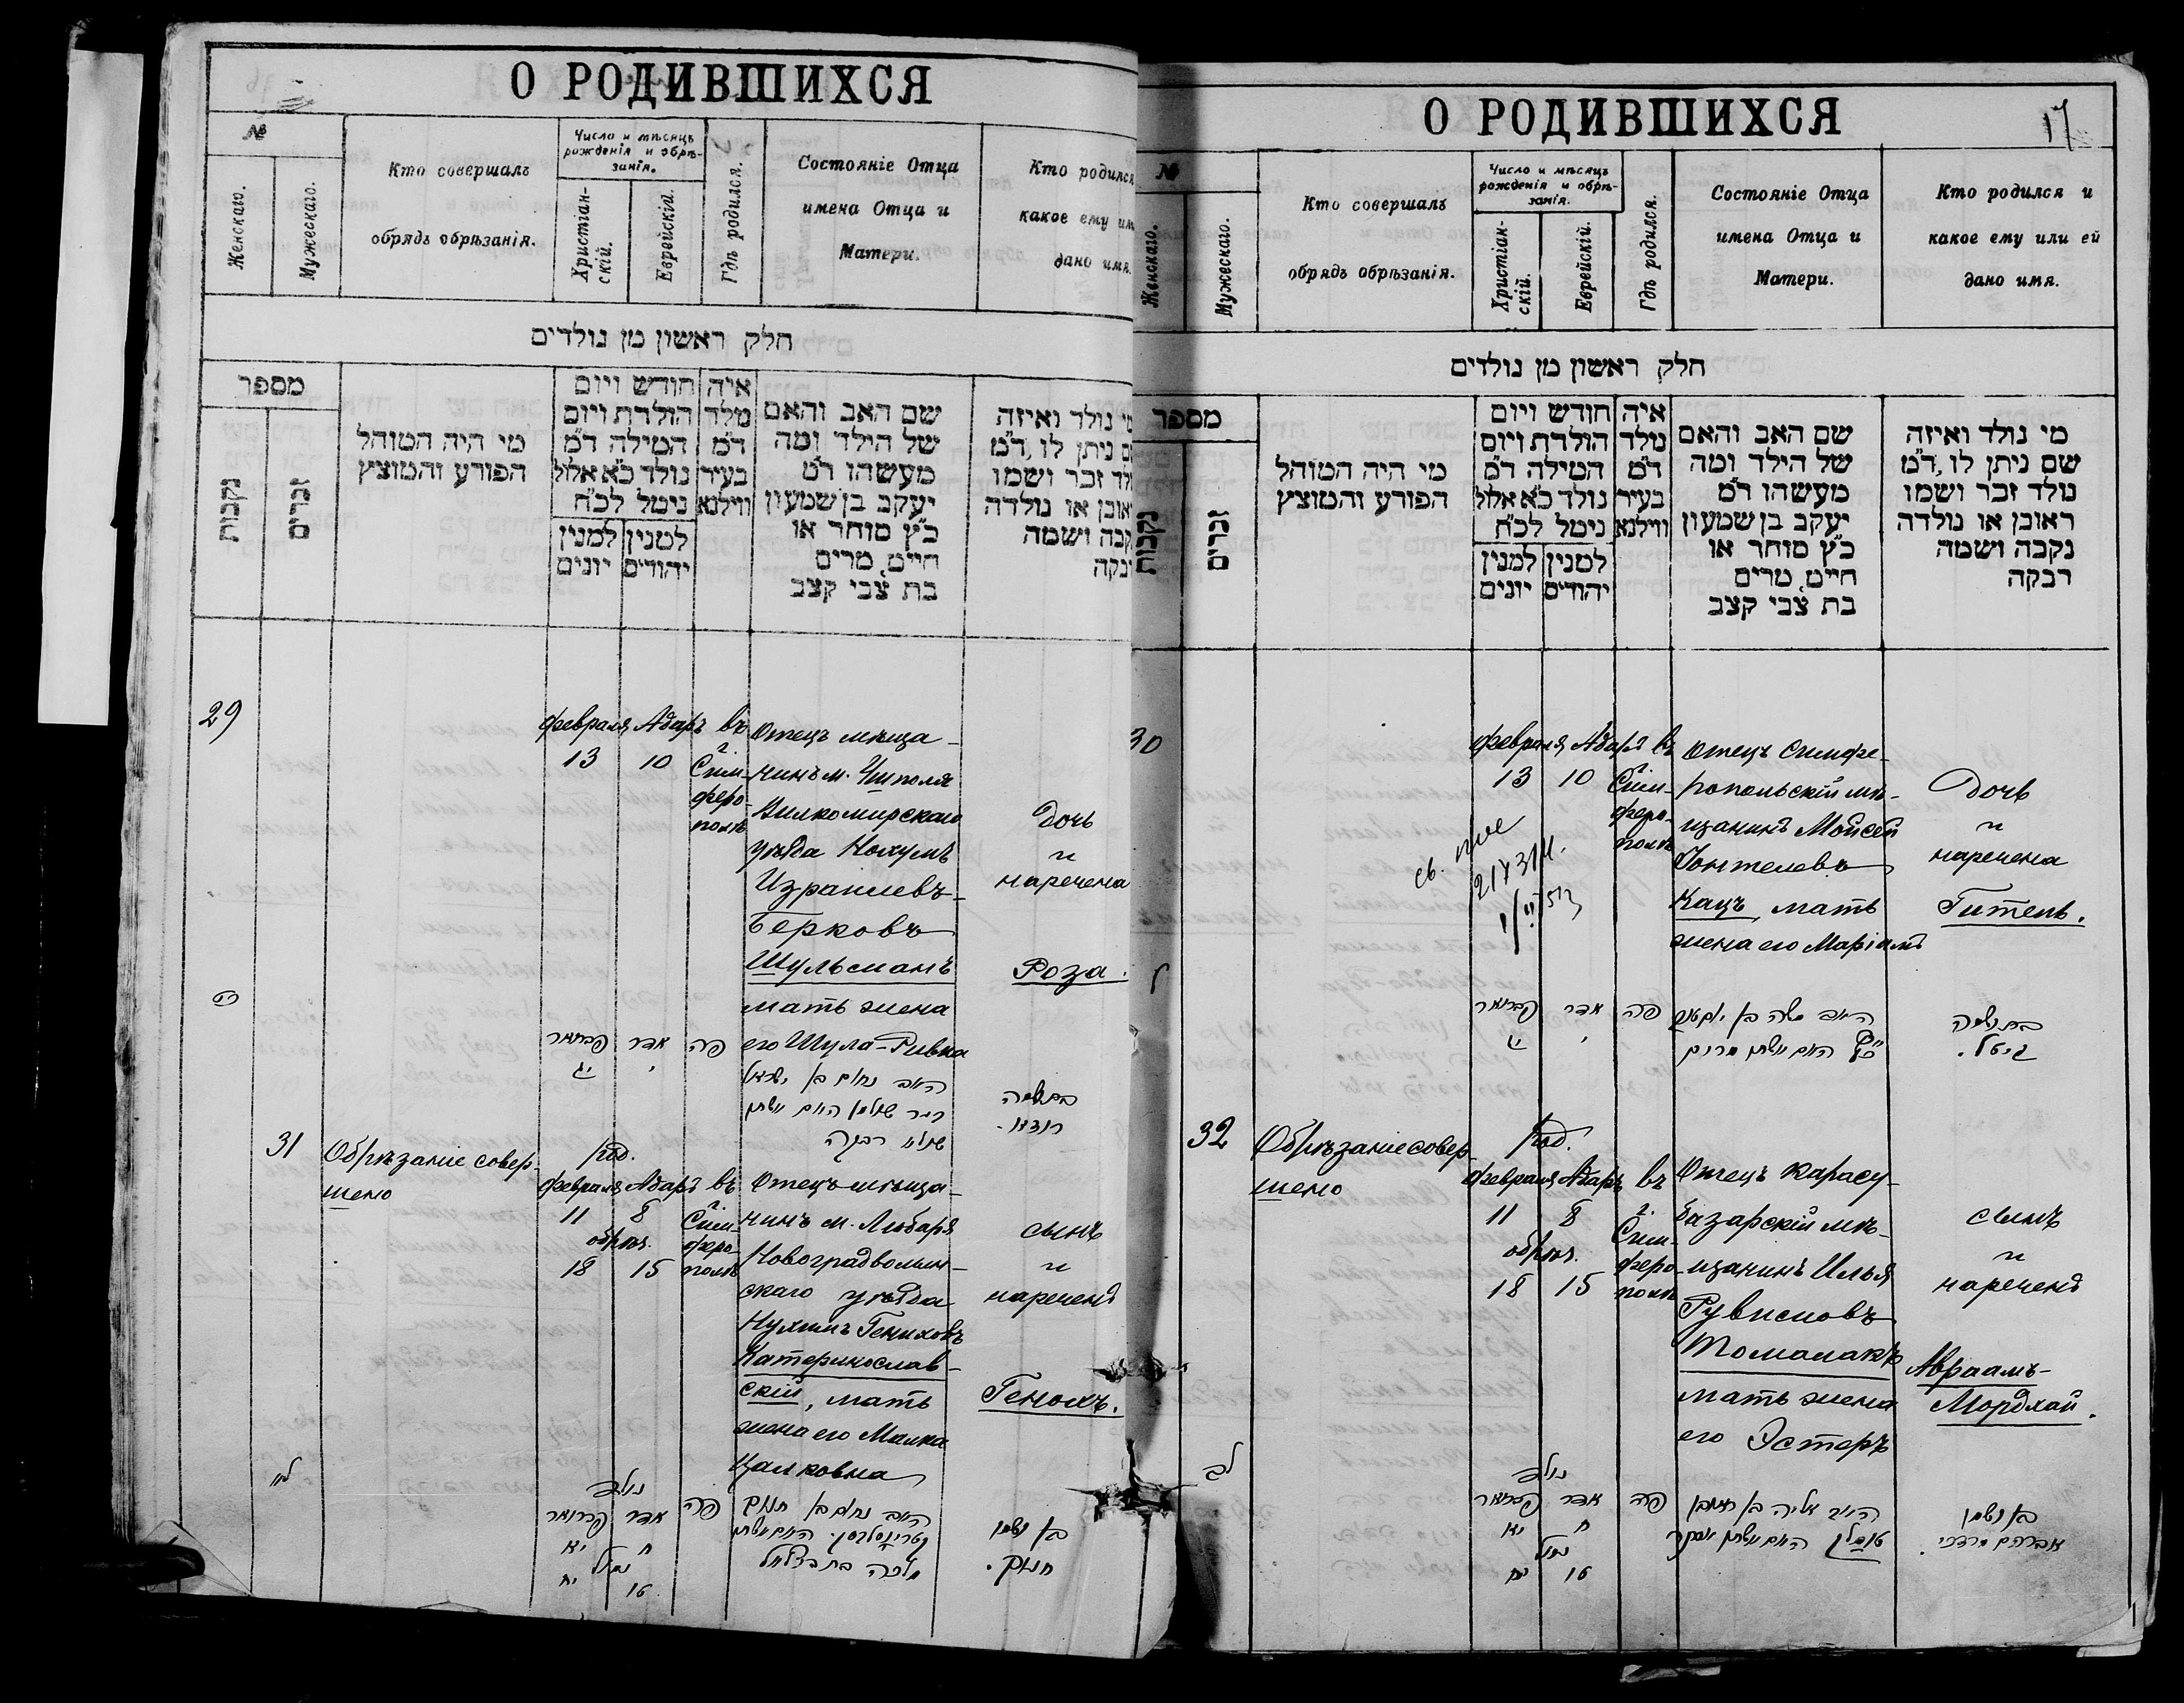 О РОДИВШИХСЯ
№
Женскаго.
Мужескаго.
Кто совершалъ
обрядъ обрѣзанія.
Число и мѣсяцъ
рожденія и обрѣ-
занія.
Христіан-
скій.
Еврейскій.
Гдѣ родился.
Состояніе Отца
имена Отца и
Матери.
Кто родился
какое ему
дано имя.
חלק ראשון מן נולדים
מספר
נקבות
זכרים
מי היה המוהל
הפורע והמוצץ
חודש ויום
הולדת ויום
המילה ד״מ
נולד כ״א אלול
נימל לכ״ח
למנין
יהודים
למנין
יונים
איה
נולד
ד״מ
בעיר
ווילנא
שם האב והאם
של הילד ומה
מעשהו ד״מ
יעקב בן שמעון
כ״ץ סוחר או
חייט, מרים
בת צבי קצב
נולד ואיזה
ניתן לו, ד״מ
זכר ושמו
או נולדה
ושמה
29
февраля Адаръ въ
13 10
г. Сим-
феро-
полѣ
Отецъ мѣща-
нинъ м.
Вилкомирскаго
уѣзда Нохумъ
Израилевъ-
Берковъ
Шульманъ
мать жена
его Шула-Ривка
Дочь
и
наречена
Роза.
פברואר אדר פה
יג י
האב נחום בן ישראל
בער שולמן האם אשתו
שולא רבקה
בת ושמה
ראזא.
31
Обрѣзаніе совер-
шено
род.
февраля Адаръ въ
11 8
обрѣз.
18 15
г. Сим-
феро-
полѣ
Отецъ мѣща-
нинъ м. Любаря
Новоградволын-
скаго уѣзда
Нухимъ Гениховъ
Катеринослав-
скій, мать
жена его Малка
Цалковна
сынъ
и
нареченъ
Генохъ.
נולד
פברואר אדר פה
יא ח
נמול
יח טו
האב נחום בן חנוך
האם אשתו
מלכה בת בצלאל
בן ושמו
חנוך.
О РОДИВШИХСЯ
17
№
Женскаго.
Мужескаго.
Кто совершалъ
обрядъ обрѣзанія.
Число и мѣсяцъ
рожденія и обрѣ-
занія.
Христіан-
скій.
Еврейскій.
Гдѣ родился.
Состояніе Отца
имена Отца и
Матери.
Кто родился и
какое ему или ей
дано имя.
חלק ראשון מן נולדים
מספר
נקבות
זכרים
מי היה המוהל
הפורע והמוצץ
חודש ויום
הולדת ויום
המילה ד״מ
נולד כ״א אלול
נימל לכ״ח
למנין
יהודים
למנין
יונים
איה
נולד
ד״מ
בעיר
ווילנא
שם האב והאם
של הילד ומה
מעשהו ד״מ
יעקב בן שמעון
כ״ץ סוחר או
חייט, מרים
בת צבי קצב
מי נולד ואיזה
שם ניתן לו, ד״מ
נולד זכר ושמו
ראובן או נולדה
נקבה ושמה
רבקה
30
февраля Адаръ въ
13 10
г. Сим-
феро-
полѣ
Отецъ симфе-
ропольскій мѣ-
щанинъ Мойсей
Кацъ, мать
жена его Маріамъ
Дочь
и
наречена
Гитель.
ל
פברואר אדר פה
יג י
האב משה בן
כ״ץ האם אשתו מרים
בת ושמה
גיטל.
32
Обрѣзаніе совер-
шено
род.
февраля Адаръ въ
11 8
обрѣз.
18 15
г. Сим-
феро-
полѣ
Отецъ карасу-
базарскій мѣ-
щанинъ Илья
Рувимовъ
Томалакъ
мать жена
его Эстеръ
сынъ
и
нареченъ
Авраамъ-
Мордхай.
לב
נולד
פברואר אדר פה
יא ח
נמול
יח טו
האב אליה בן ראובן
האם אשתו אסתר
בן ושמו
אברהם מרדכי.